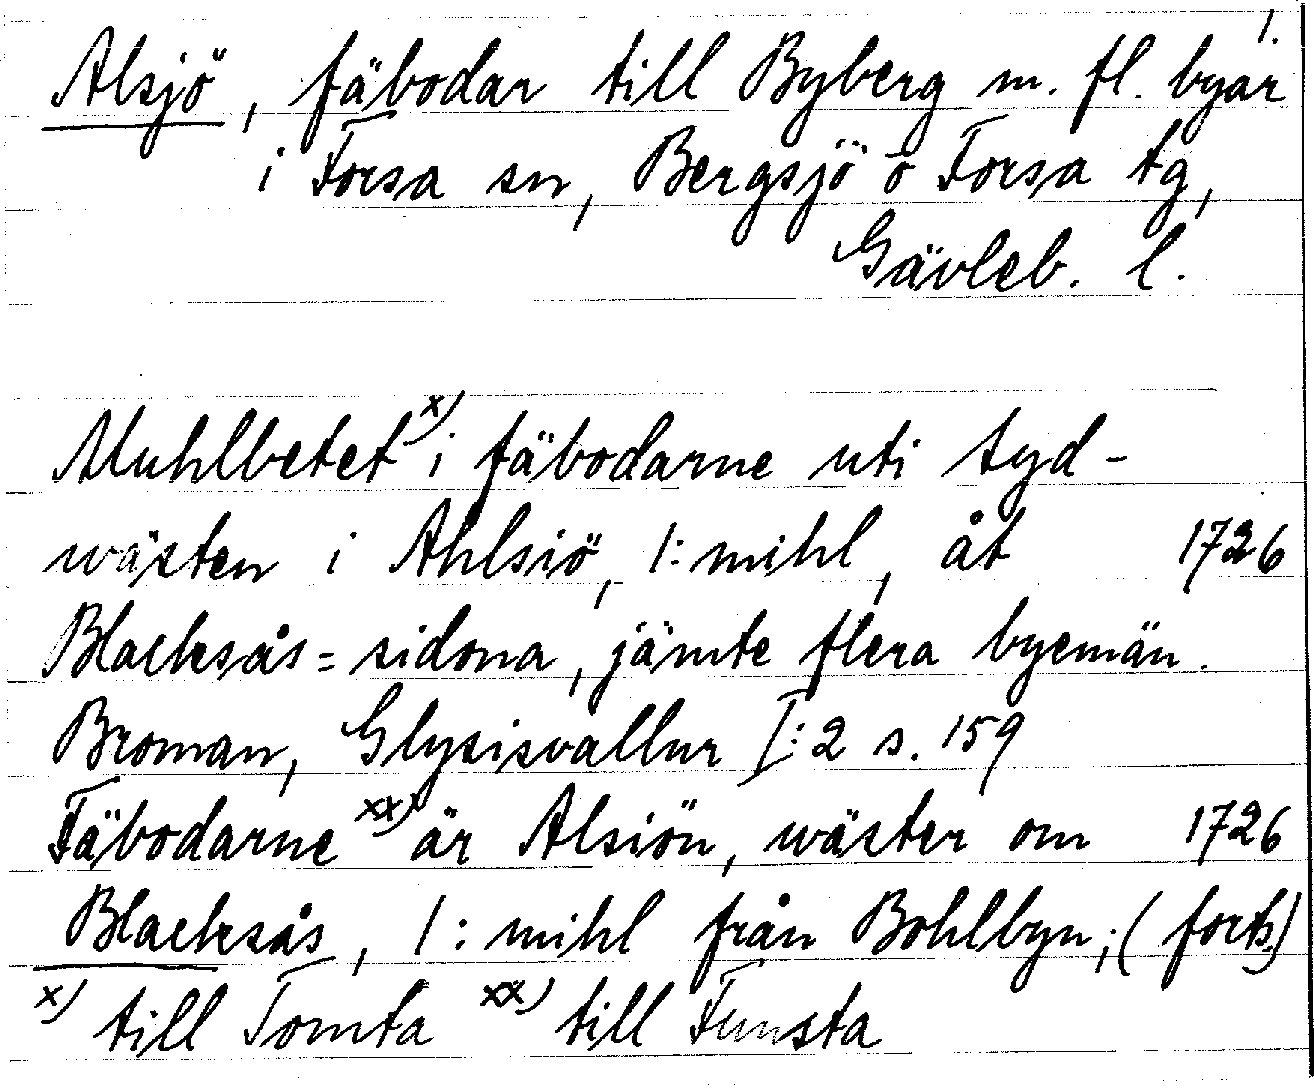 1.
Alsjö, fäbodar till Byberg m. fl. byar
i Forsa sn, Bergsjö o Forsa tg,
Gävleb. l.
Muhlbetet x) i fäbodarne uti syd-
wästen i Åhlsiö, 1: mihl, åt 1726
Blacksås=sidona, jämte flera byemän.
Broman, Glysisvallur I:2 s. 159
Fäbodarne xx) är Alsiön, wäster om 1726
Blacksås, 1: mihl från Bohlbyn; (forts.)
x) till Tomta xx) till Funsta